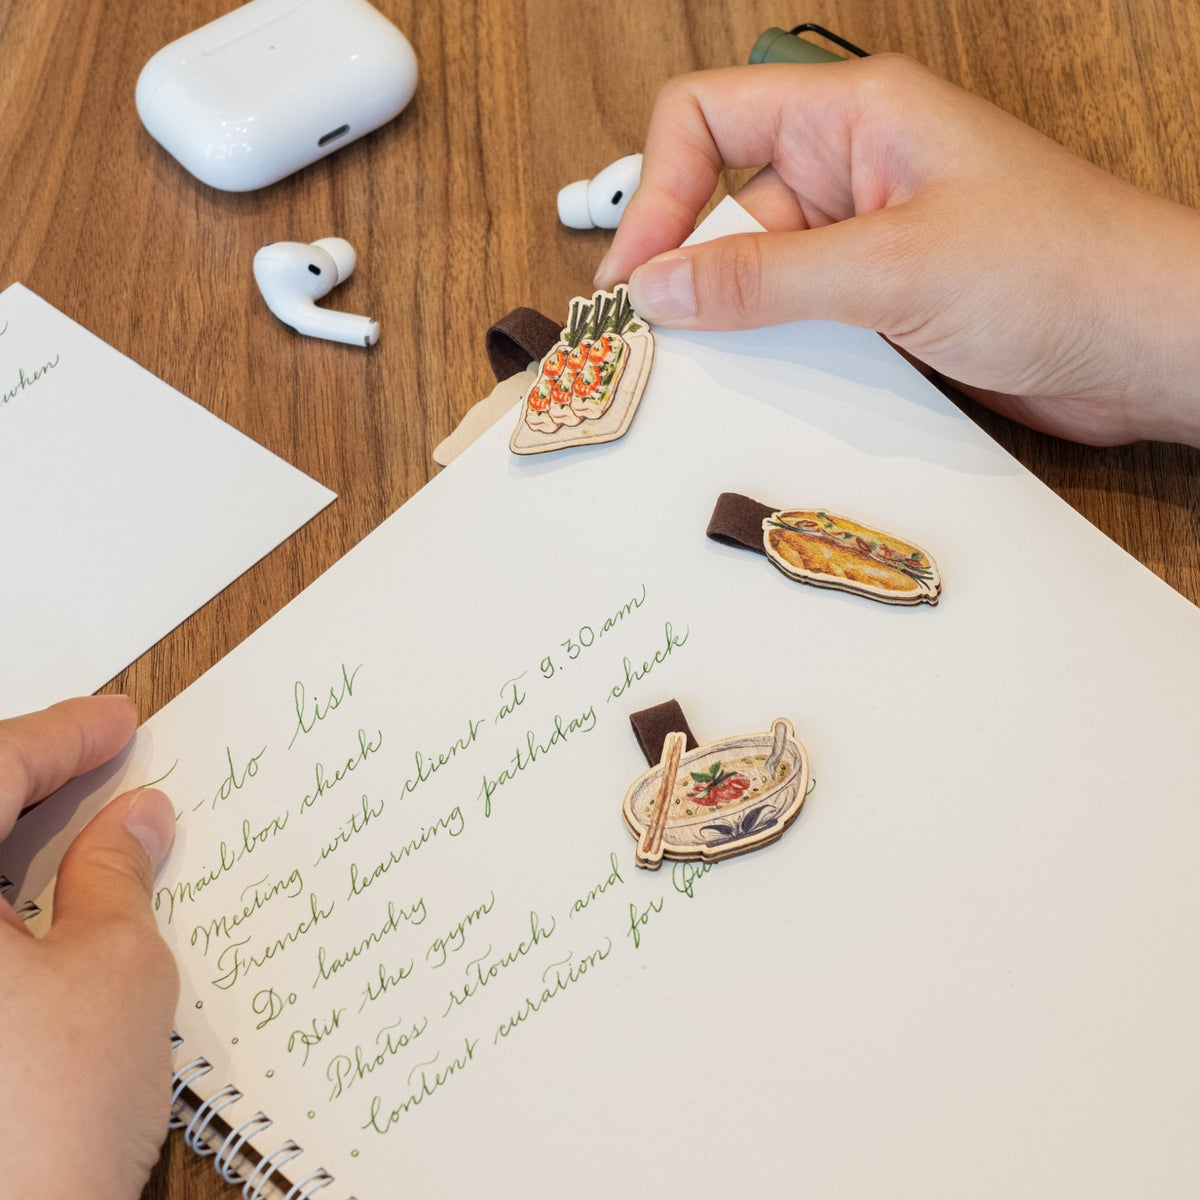 when
To-do list
Mailbox check
Meeting with client at 9.30 am
French learning pathday check
Do laundry
Hit the gym
Photos retouch and
Content curation for